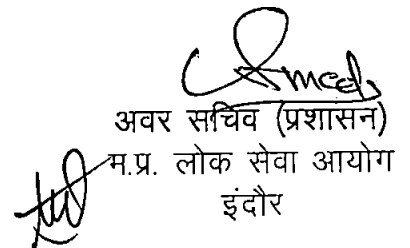 अवर सचिव (प्रशासन)
म.प्र. लोक सेवा आयोग
इंदौर